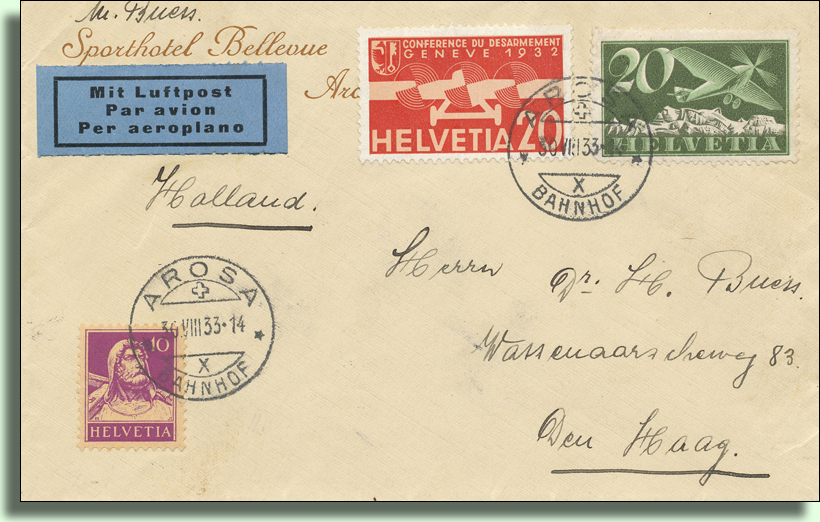 M. Buess.
Sporthotel Bellevue
Mit Luftpost
Par avion
Per aeroplano
CONFERENCE DU DESARMEMENT
GENEVE 1932
HELVETIA 20
20
HELVETIA
AROSA
30 VIII 33-14
X
BAHNHOF
Holland.
Herrn Dr. H. Buess.
Wassenaarscheweg 83.
Den Haag.
AROSA
30 VIII 33-14
X
BAHNHOF
10
HELVETIA